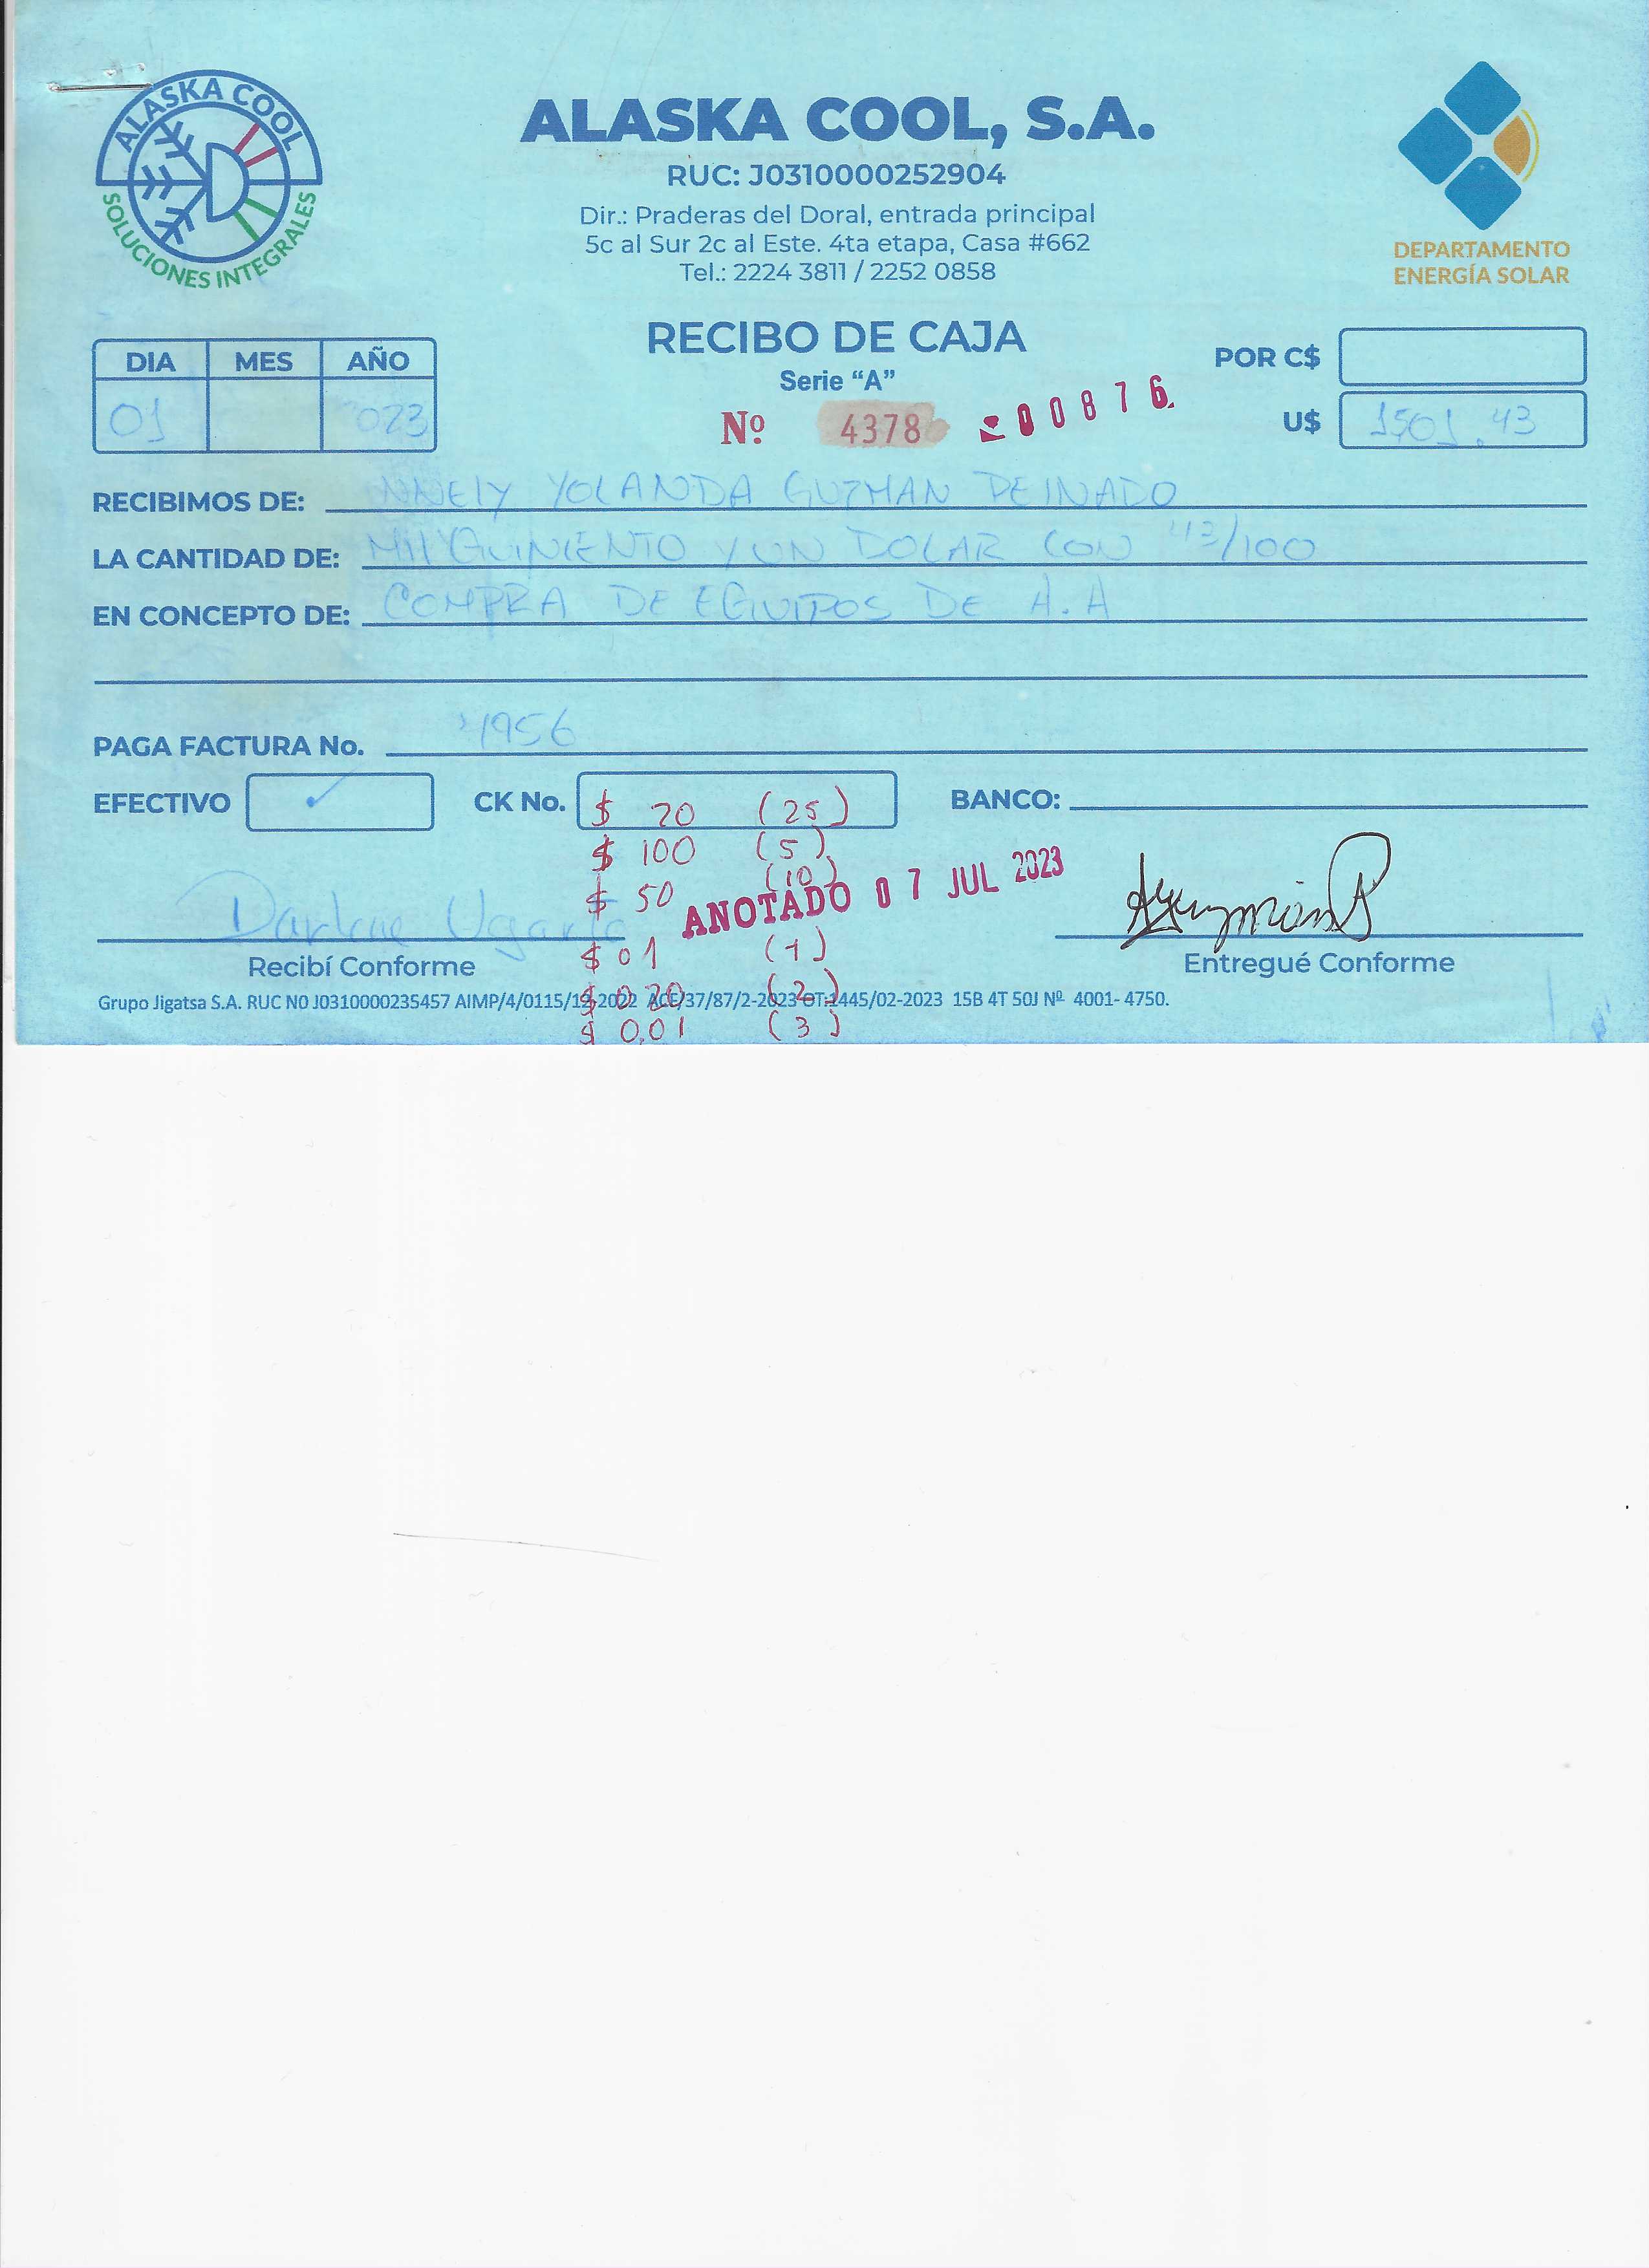 ALASKA COOL
SOLUCIONES INTEGRALES
ALASKA COOL, S.A.
RUC: J0310000252904
Dir.: Praderas del Doral, entrada principal
5c al Sur 2c al Este. 4ta etapa, Casa #662
Tel.: 2224 3811 / 2252 0858
DEPARTAMENTO
ENERGÍA SOLAR
RECIBO DE CAJA
Serie “A”
Nº 4378 00876
DIA MES AÑO
01 023
POR C$
U$ 1501.43
RECIBIMOS DE: NNELY YOLANDA GUZMAN PEINADO
LA CANTIDAD DE: MIL QUINIENTO Y UN DOLAR CON 43/100
EN CONCEPTO DE: COMPRA DE EQUIPOS DE A.A
PAGA FACTURA No. 4956
EFECTIVO ✓ CK No. BANCO:
$ 20 (25)
$ 100 (5)
$ 50 (10)
ANOTADO 07 JUL 2023
$ 01 (1)
$ 0.20 (2)
$ 0.01 (3)
Darlene Ugarte
Recibí Conforme
Entregué Conforme
Grupo Jigatsa S.A. RUC N0 J0310000235457 AIMP/4/0115/12-2022 ACE/37/87/2-2023 OT:1445/02-2023 15B 4T 50J Nº 4001- 4750.